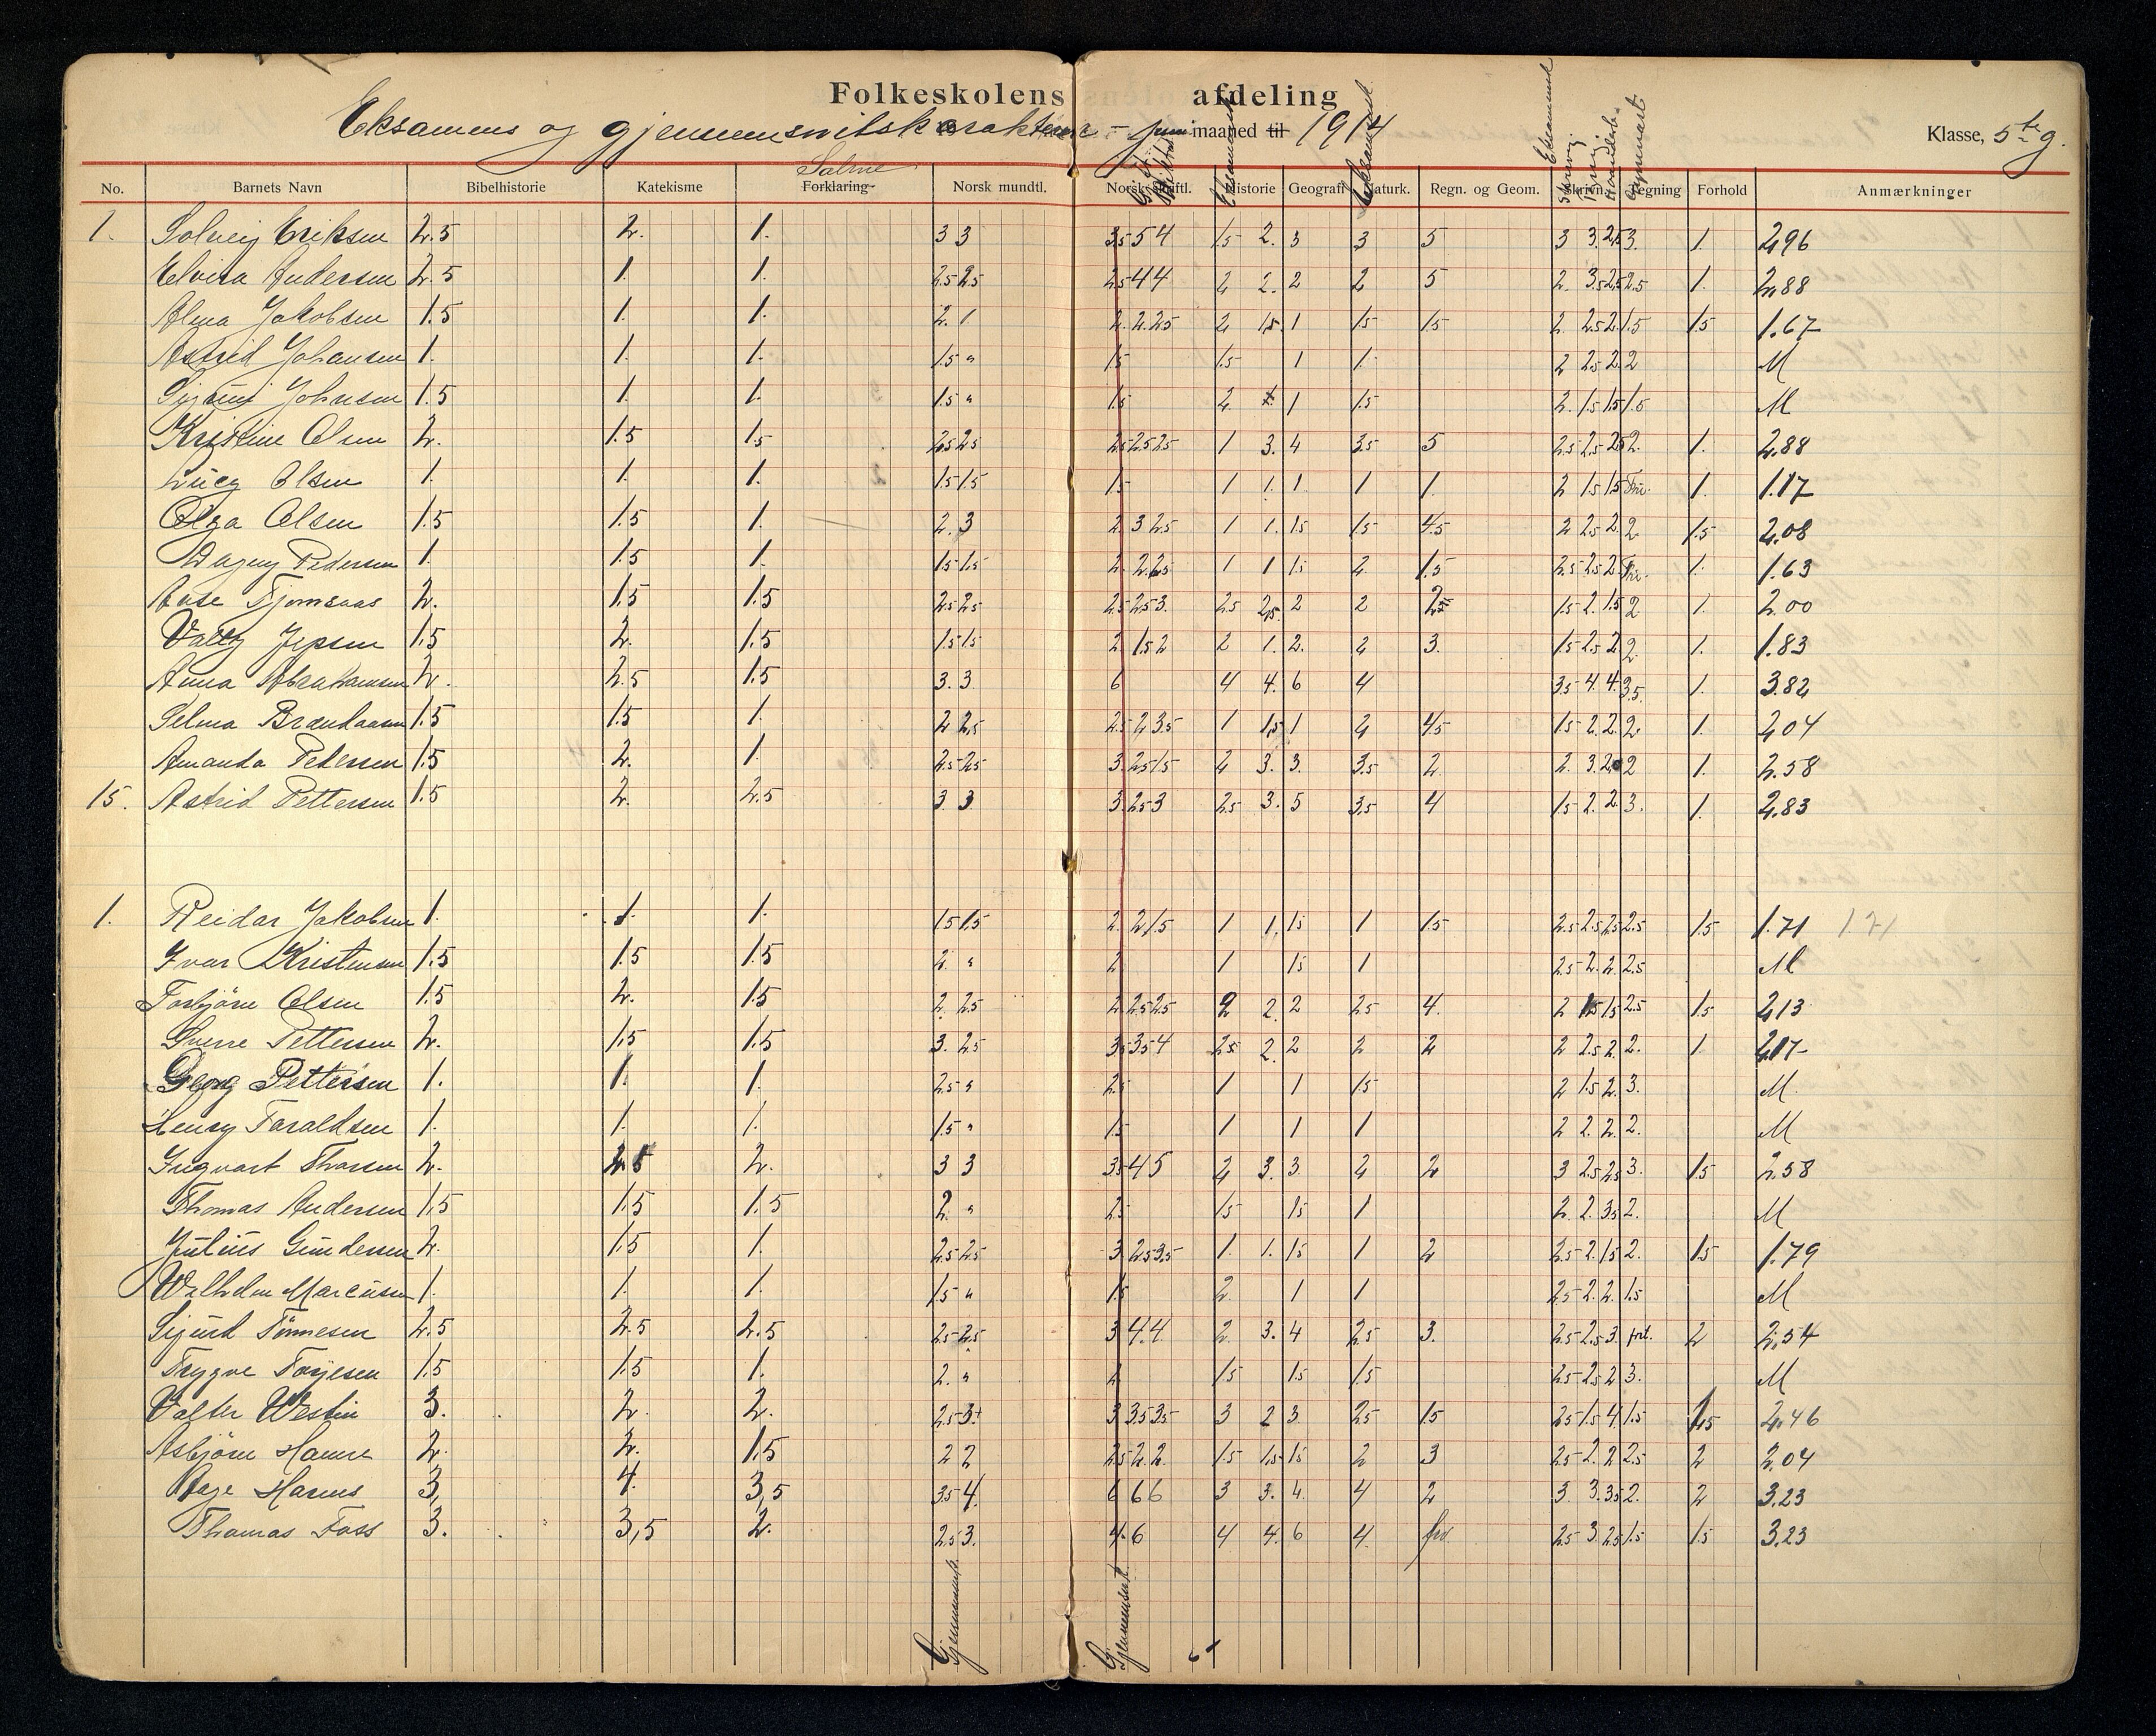 Folkeskolens afdeling
Eksamens og gjennemsnitskarakterer - juni maaned til 1914 Klasse, 5te g.
No. Barnets Navn Bibelhistorie Katekisme Salme Forklaring Norsk mundtl. Norsk skriftl. Historie Geografi Naturk. Regn. og Geom. Skrivn. Tegning Forhold Anmærkninger
1. Solveig Eriksen 2.5 2. 1. 3 3 3.5 5 4 1.5 2. 3 3 5 3 3. 2.5 3. 1. 2,96
Elvira Andersen 2.5 1. 1. 2.5 2.5 2.5 4 4 2 2. 2 2 5 2. 3.5 2.5 2.5 1. 2,88
Alma Jakobsen 1.5 1. 1. 2. 1. 2. 2. 2.5 2 1.5 1 1.5 1.5 2. 2.5 2. 1.5 1.5 1.67
Astrid Johansen 1. 1. 1. 1.5 " 1.5 1.5 1 1. 2 2.5 2. 2 M
Johnsen 1.5 1. 1. 1.5 " 1.5 2 1 1.5 2. 1.5 1.5 1.5 M
Kristine Olsen 2. 1.5 1.5 2.5 2.5 2.5 2.5 2.5 1 3. 4 3.5 5 2.5 2.5 2.5 2. 1. 2.88
Lucy Olsen 1. 1. 1. 1.5 1.5 1.5 1 1. 1. 1 1. 2 1.5 1.5 Fri. 1. 1.17
Olga Olsen 1.5 1.5 1. 2. 3 2. 3 2.5 1 1. 1.5 1.5 4.5 2 2.5 2. 2. 1.5 2.08
Dagny Pedersen 1. 1.5 1. 1.5 1.5 2. 2. 2.5 1 1 1.5 2. 1.5 2.5 2.5 2. Fri. 1. 1.63
Aase Tjomsaas 2. 1.5 1.5 2.5 2.5 2.5 2.5 3. 2.5 2.5 2 2 2.5 1.5 2. 1.5 2 1. 2.00
Vally Jepsen 1.5 2. 1.5 1.5 1.5 2 1.5 2 2 1. 2. 2 3. 1.5 2.5 2. 2. 1. 1.83
Anna Abrahamsen 2. 2.5 1.5 3. 3. 6 4 4. 6 4 3.5 4. 4. 3.5. 1. 3.82
Selma Brændaasen 1.5 1.5 1. 2 2.5 2.5 2 3.5 1 1.5 1 2 4.5 1.5 2. 2. 2. 1. 2,04
Amanda Pedersen 1.5 2. 1. 2.5 2.5 3. 2.5 1.5 2 3. 3. 3.5 2. 2. 3. 2. 2 1. 2.58
15. Astrid Pettersen 1.5 2. 2.5 3. 3. 3. 2.5 3 2.5 3. 5 3.5 4 1.5 2. 2. 3. 1. 2.83
1. Reidar Jakobsen 1. 1. 1. 1.5 1.5 2. 2 1.5 1 1. 1.5 1 1.5 2.5 2.5 2.5 2.5 1.5 1.71 1.71
Ivar Kristensen 1.5 1.5 1.5 2. " 2 1 1.5 1 2.5 2. 2. 2.5 M
Torbjörn Olsen 1.5 2. 1.5 2. 2.5 2. 2.5 2.5 2 2. 2 2.5 4. 2 1.5 1.5 2.5 1.5 2,13
Sverre Pettersen 2. 1.5 1.5 3. 2.5 3.5 3.5 4 2.5 2. 2 2 2 2 2.5 2. 2. 1. 2,17
Georg Pettersen 1. 1. 1. 2.5 " 2.5 1 1 1.5 2 1.5 2. 3. M.
Henry Taraldsen 1. 1. 1. 1.5 " 1.5 1 1 1 2 2. 2. 2. M
Ingvart Thorsen 2. 2.5 2. 3 3 3.5 4 5 2 3. 3. 2 2 3 2.5 2.5 3. 1.5 2.58
Thomas Andersen 1.5 1.5 1.5 2. " 2.5 1.5 1.5 1 2. 2. 3.5 2. M
Julius Gundersen 2. 1.5 1. 2.5 2.5 3 2.5 3.5 1. 1. 1.5 1 2 2.5 2. 1.5 2. 1.5 1.79
Wilhelm Marcussen 1. 1. 1. 1.5 " 1.5 2. 1 1 2.5 2. 2. 1.5 M
Sigurd Tönnesen 2.5 2.5 2.5 2.5 2.5 3 4. 4. 2. 3. 4 2.5 3. 2.5 2.5 3. frit. 2 2.54
Trygve Torjesen 1.5 1.5 1. 2. " 2 1.5 1.5 1.5 2.5 2.5 2 3. M
Valter Westin 3. 2. 2. 2.5 3.+ 3 3.5 3.5 3 2 3. 2.5 1.5 2.5 1.5 4. 1.5 1.5 2.46
Asbjörn Hamre 2. 2. 1.5 2 2 2.5 2. 2. 1.5 1.5 1.5 2 3 2.5 2. 2 2.5 2 2.04
Aage Hanus 3, 4. 3,5 3.5 4. 6 6 6 3 3. 4. 4 2 3. 3. 3.5 2. 2 3.23
Thomas Foss 3. 3,5 2. 2.5 3. 4. 6 4 4. 6 4. fri. 2.5 3. 2.5 1.5 1.5 3.23
Gjennemsnit. Gjennemsnit.